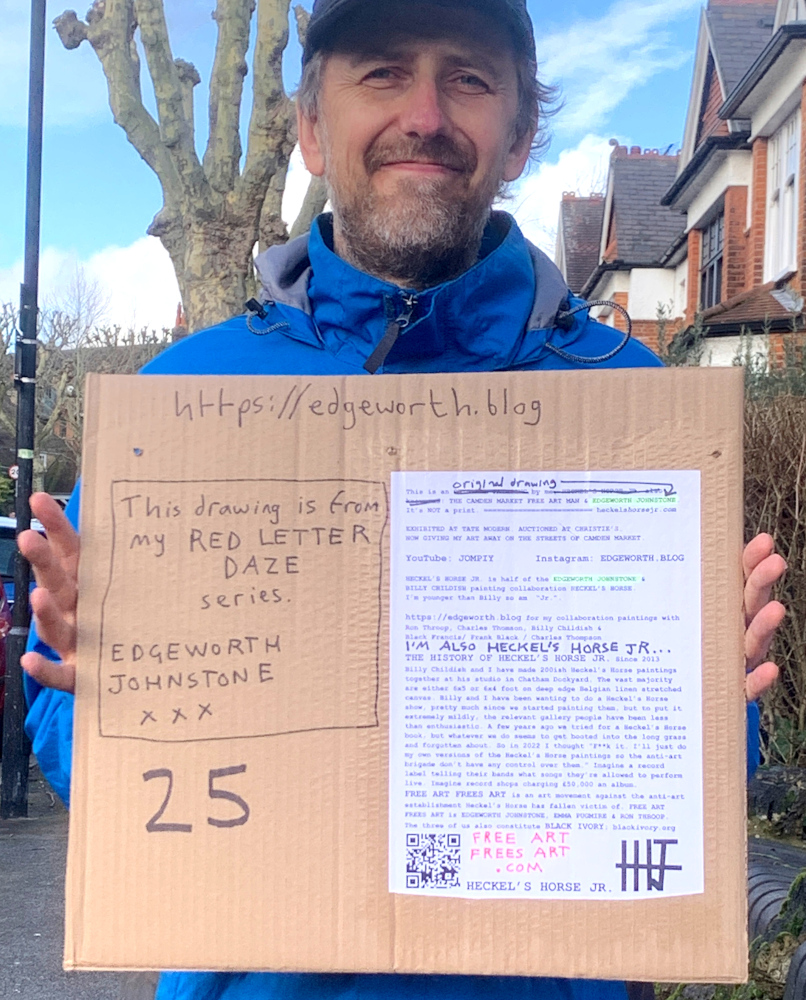 https://edgeworth.blog
This drawing is from
my RED LETTER
DAZE
series.
EDGEWORTH
JOHNSTONE
x x x
25
original drawing
This is an by
THE CAMDEN MARKET FREE ART MAN & EDGEWORTH JOHNSTONE
It's NOT a print. heckelshorsejr.com
EXHIBITED AT TATE MODERN. AUCTIONED AT CHRISTIE'S.
NOW GIVING MY ART AWAY ON THE STREETS OF CAMDEN MARKET.
YouTube: JOMPIY Instagram: EDGEWORTH.BLOG
HECKEL'S HORSE JR. is half of the EDGEWORTH JOHNSTONE &
BILLY CHILDISH painting collaboration HECKEL'S HORSE.
I'm younger than Billy so am "Jr".
https://edgeworth.blog for my collaboration paintings with
Ron Throop, Charles Thomson, Billy Childish &
Black Francis/ Frank Black / Charles Thompson
I'M ALSO HECKEL'S HORSE JR...
THE HISTORY OF HECKEL'S HORSE JR. Since 2013
Billy Childish and I have made 200ish Heckel's Horse paintings
together at his studio in Chatham Dockyard. The vast majority
are either 6x5 or 6x4 foot on deep edge Belgian linen stretched
canvas. Billy and I have been wanting to do a Heckel's Horse
show, pretty much since we started painting them, but to put it
extremely mildly, the relevant gallery people have been less
than enthusiastic. A few years ago we tried for a Heckel's Horse
book, but whatever we do seems to get booted into the long grass
and forgotten about. So in 2022 I thought "F**k it. I'll just do
my own versions of the Heckel's Horse paintings so the anti-art
brigade don't have any control over them." Imagine a record
label telling their bands what songs they're allowed to perform
live. Imagine record shops charging £50,000 an album.
FREE ART FREES ART is an art movement against the anti-art
establishment Heckel's Horse has fallen victim of. FREE ART
FREES ART is EDGEWORTH JOHNSTONE, EMMA PUGMIRE & RON THROOP.
The three of us also constitute BLACK IVORY. blackivory.org
FREE ART
FREES ART
.COM
HECKEL'S HORSE JR.